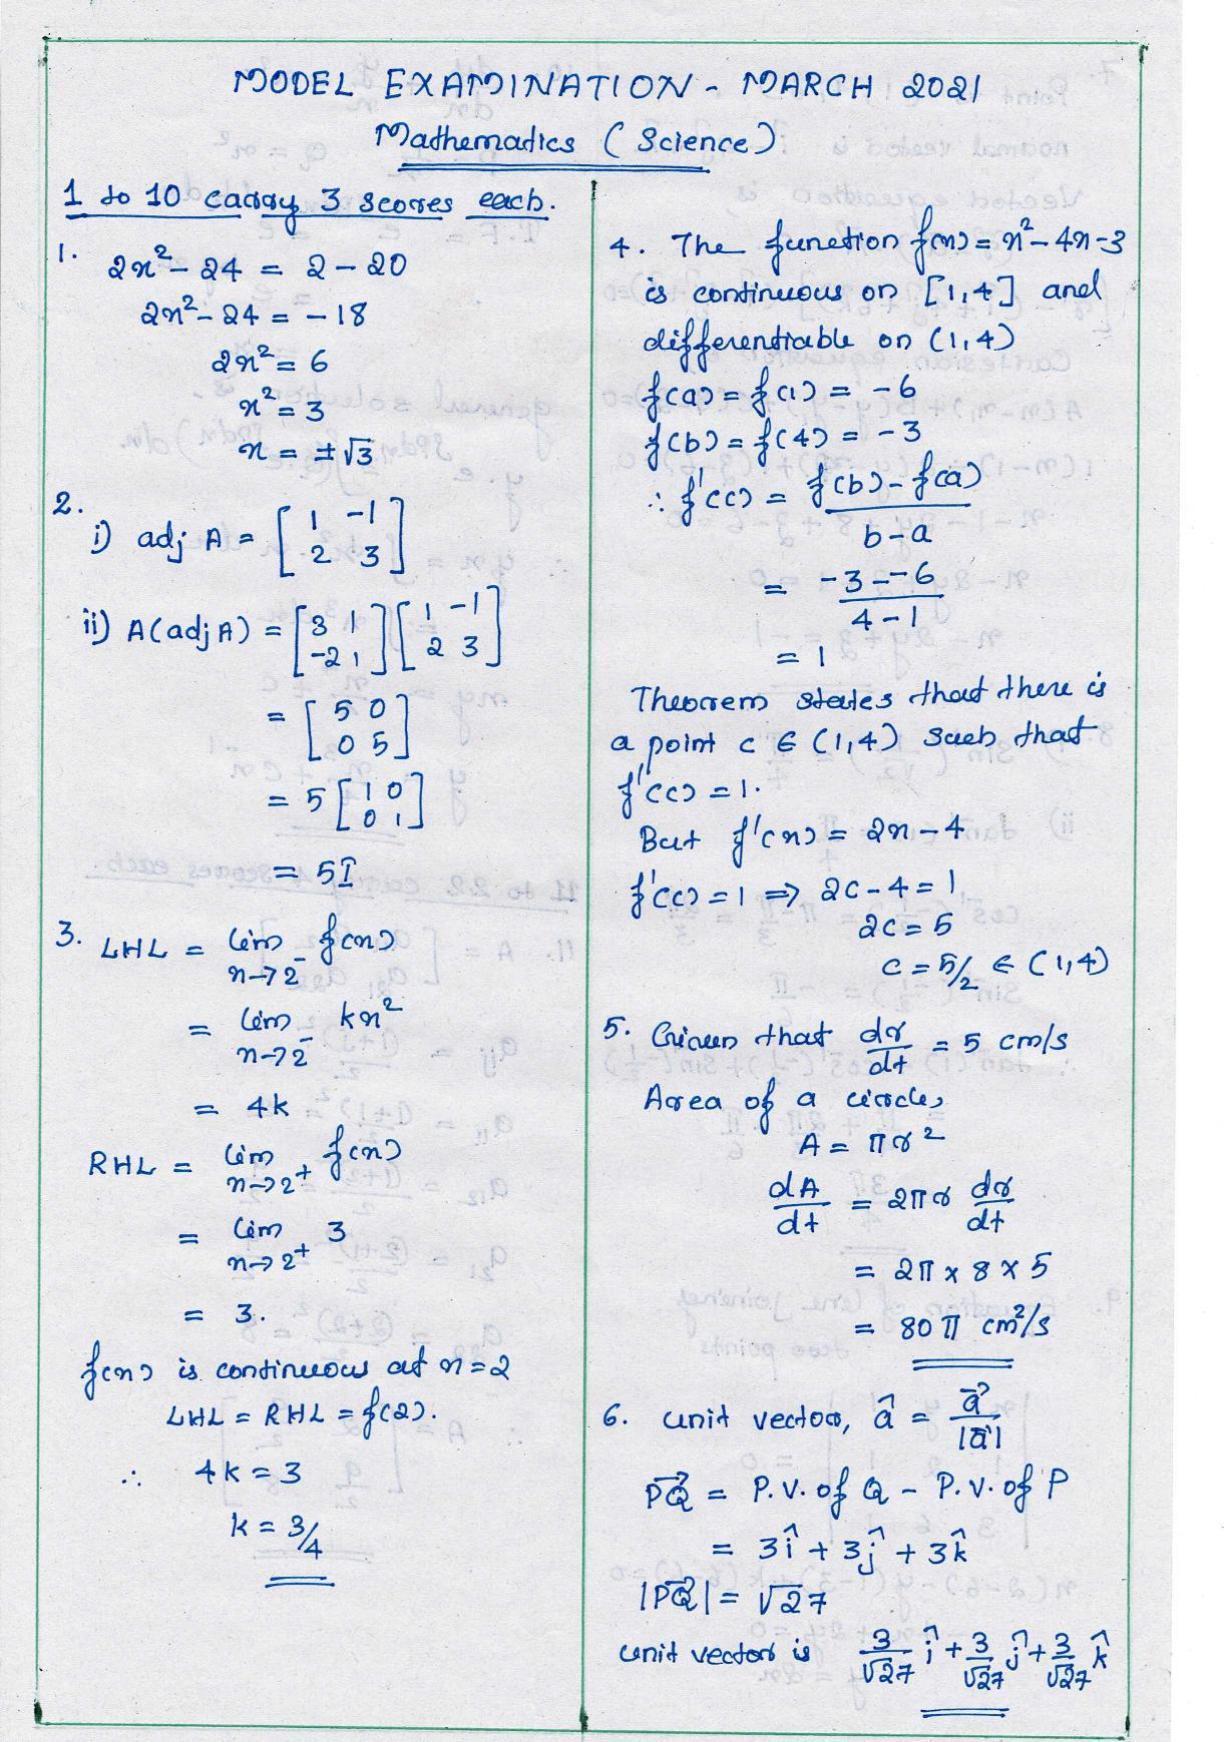 MODEL EXAMINATION - MARCH 2021
Mathematics (Science)
1 to 10 carry 3 scores each.
1. 2x² - 24 = 2 - 20
2x² - 24 = -18
2x² = 6
x² = 3
x = ±√3
2.
i) adj A = [1 -1
2 3]
ii) A(adj A) = [3 1
-2 1] [1 -1
2 3]
= [5 0
0 5]
= 5 [1 0
0 1]
= 5I
3. LHL = lim f(x)
x→2⁻
= lim kx²
x→2⁻
= 4k
RHL = lim f(x)
x→2⁺
= lim 3
x→2⁺
= 3.
f(x) is continuous at x=2
LHL = RHL = f(2).
∴ 4k = 3
k = 3/4
4. The function f(x) = x² - 4x - 3
is continuous on [1,4] and
differentiable on (1,4)
f(a) = f(1) = -6
f(b) = f(4) = -3
∴ f'(c) = f(b) - f(a)
b - a
= -3 - -6
4 - 1
= 1
Theorem states that there is
a point c ∈ (1,4) such that
f'(c) = 1.
But f'(x) = 2x - 4
f'(c) = 1 ⇒ 2c - 4 = 1
2c = 5
c = 5/2 ∈ (1,4)
5. Given that dr/dt = 5 cm/s
Area of a circle,
A = πr²
dA/dt = 2πr dr/dt
= 2π × 8 × 5
= 80π cm²/s
6. Unit vector, â = a⃗/|a⃗|
PQ⃗ = P.V. of Q - P.V. of P
= 3î + 3ĵ + 3k̂
|PQ⃗| = √27
Unit vector is 3/√27 î + 3/√27 ĵ + 3/√27 k̂